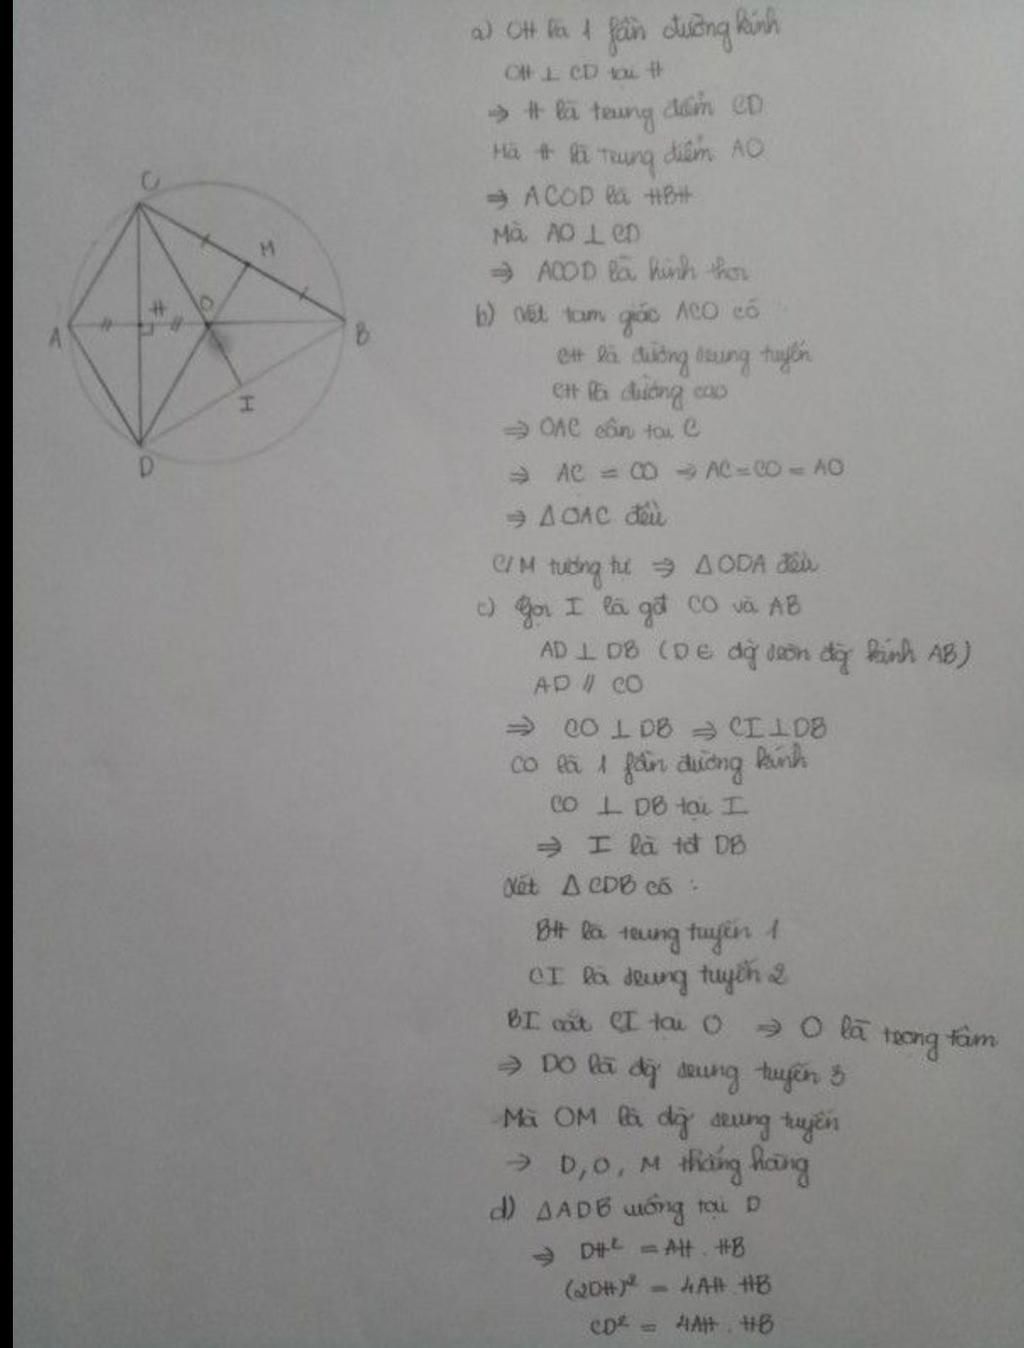 a) OH là 1 fần đường kính
OH ⊥ CD tại H
⇒ H là trung điểm CD
Mà H là trung điểm AO
⇒ ACOD là HBH
Mà AO ⊥ CD
⇒ ACOD là hình thoi
b) Xét tam giác ACO có
CH là đường trung tuyến
CH là đường cao
⇒ OAC cân tại C
⇒ AC = CO → AC = CO = AO
⇒ ΔOAC đều
C/M tương tự ⇒ ΔODA đều
c) Gọi I là gđ CO và AB
AD ⊥ DB (D ∈ đg̀ tròn đg̀ kính AB)
AD // CO
⇒ CO ⊥ DB ⇒ CI ⊥ DB
CO là 1 fần đường kính
CO ⊥ DB tại I
⇒ I là tđ DB
Xét ΔCDB có :
BH là trung tuyến 1
CI là trung tuyến 2
BI cắt CI tại O ⇒ O là trọng tâm
⇒ DO là đg̀ trung tuyến 3
Mà OM là đg̀ trung tuyến
→ D, O, M thẳng hàng
d) ΔADB vuông tại D
⇒ DH² = AH . HB
(2DH)² = 4AH . HB
CD² = 4AH . HB
C
M
H
O
A
B
I
D